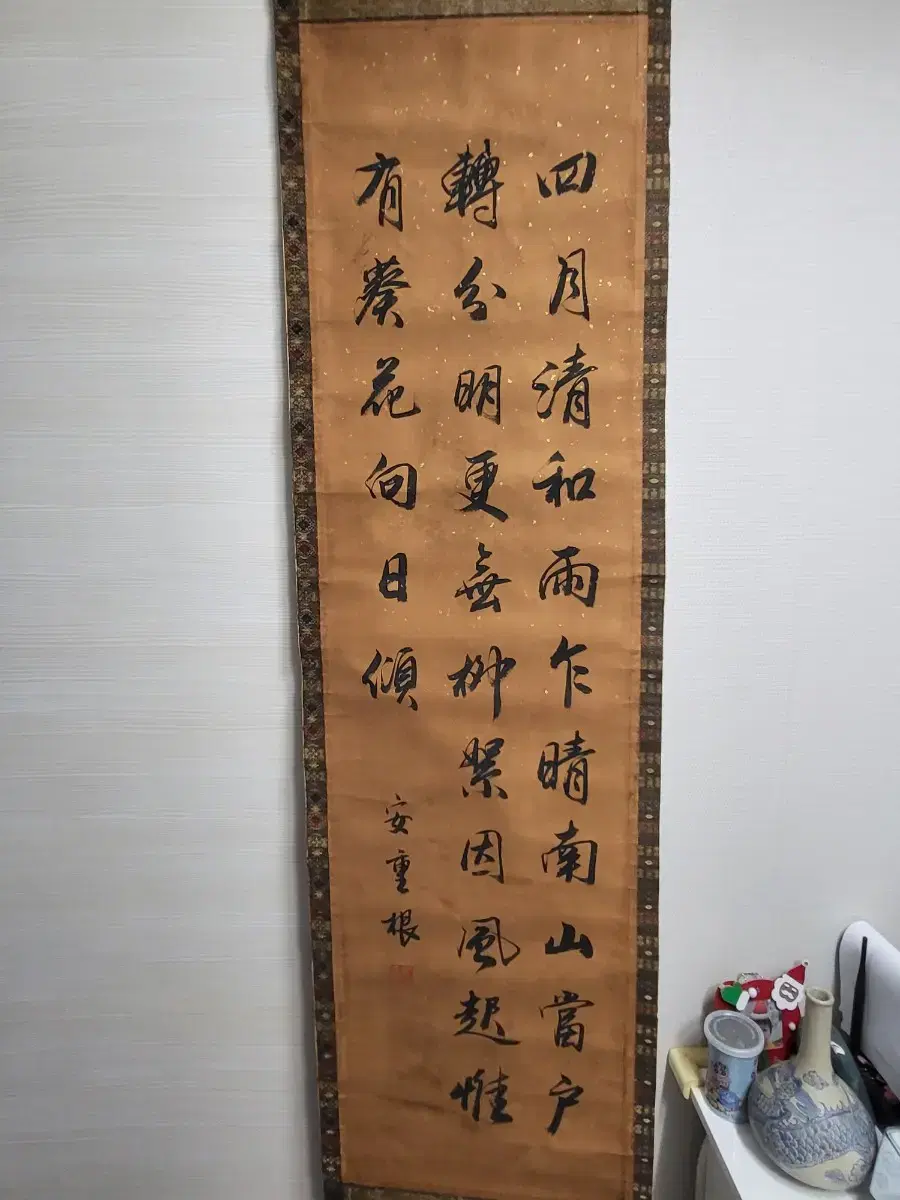 四月清和雨乍晴南山當户
轉分明更無柳絮因風起惟
有葵花向日傾
安重根